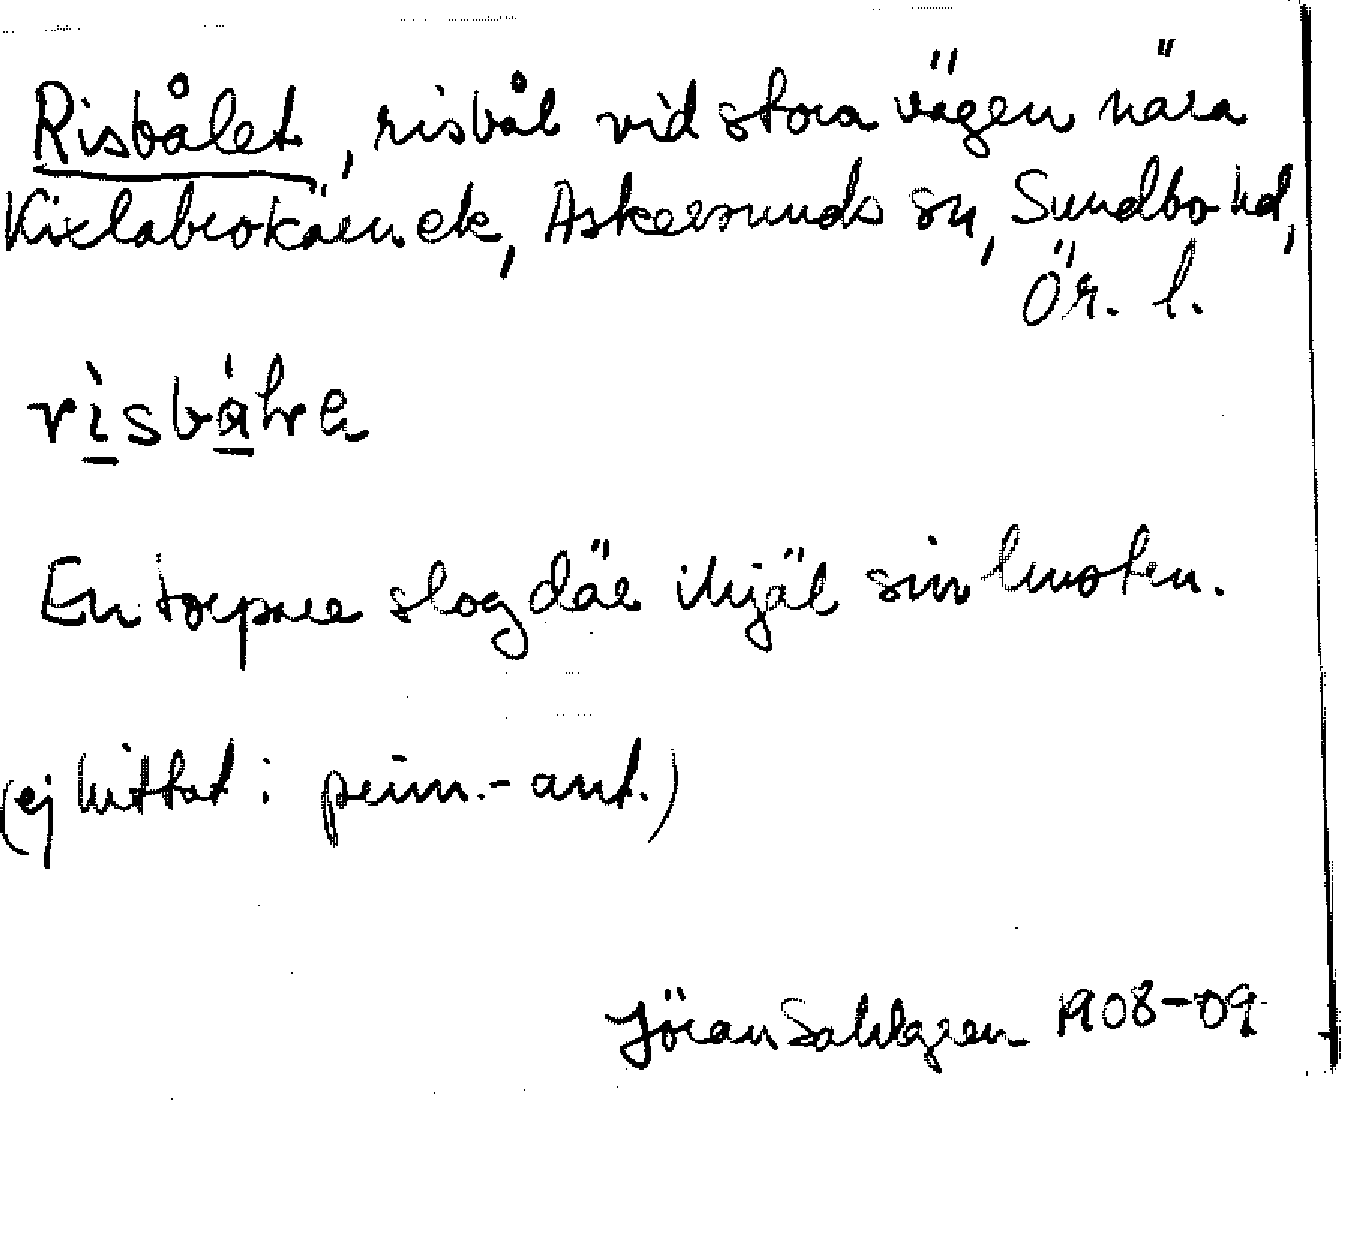 Risbålet, risbål vid stora vägen nära
Kixlabrokärn ek, Askersunds sn, Sundbo hd,
Ör. l.
En torpare slog där ihjäl sin hustru.
(ej hittat i prim.-ant.)
Jöran Sahlgren 1908-09